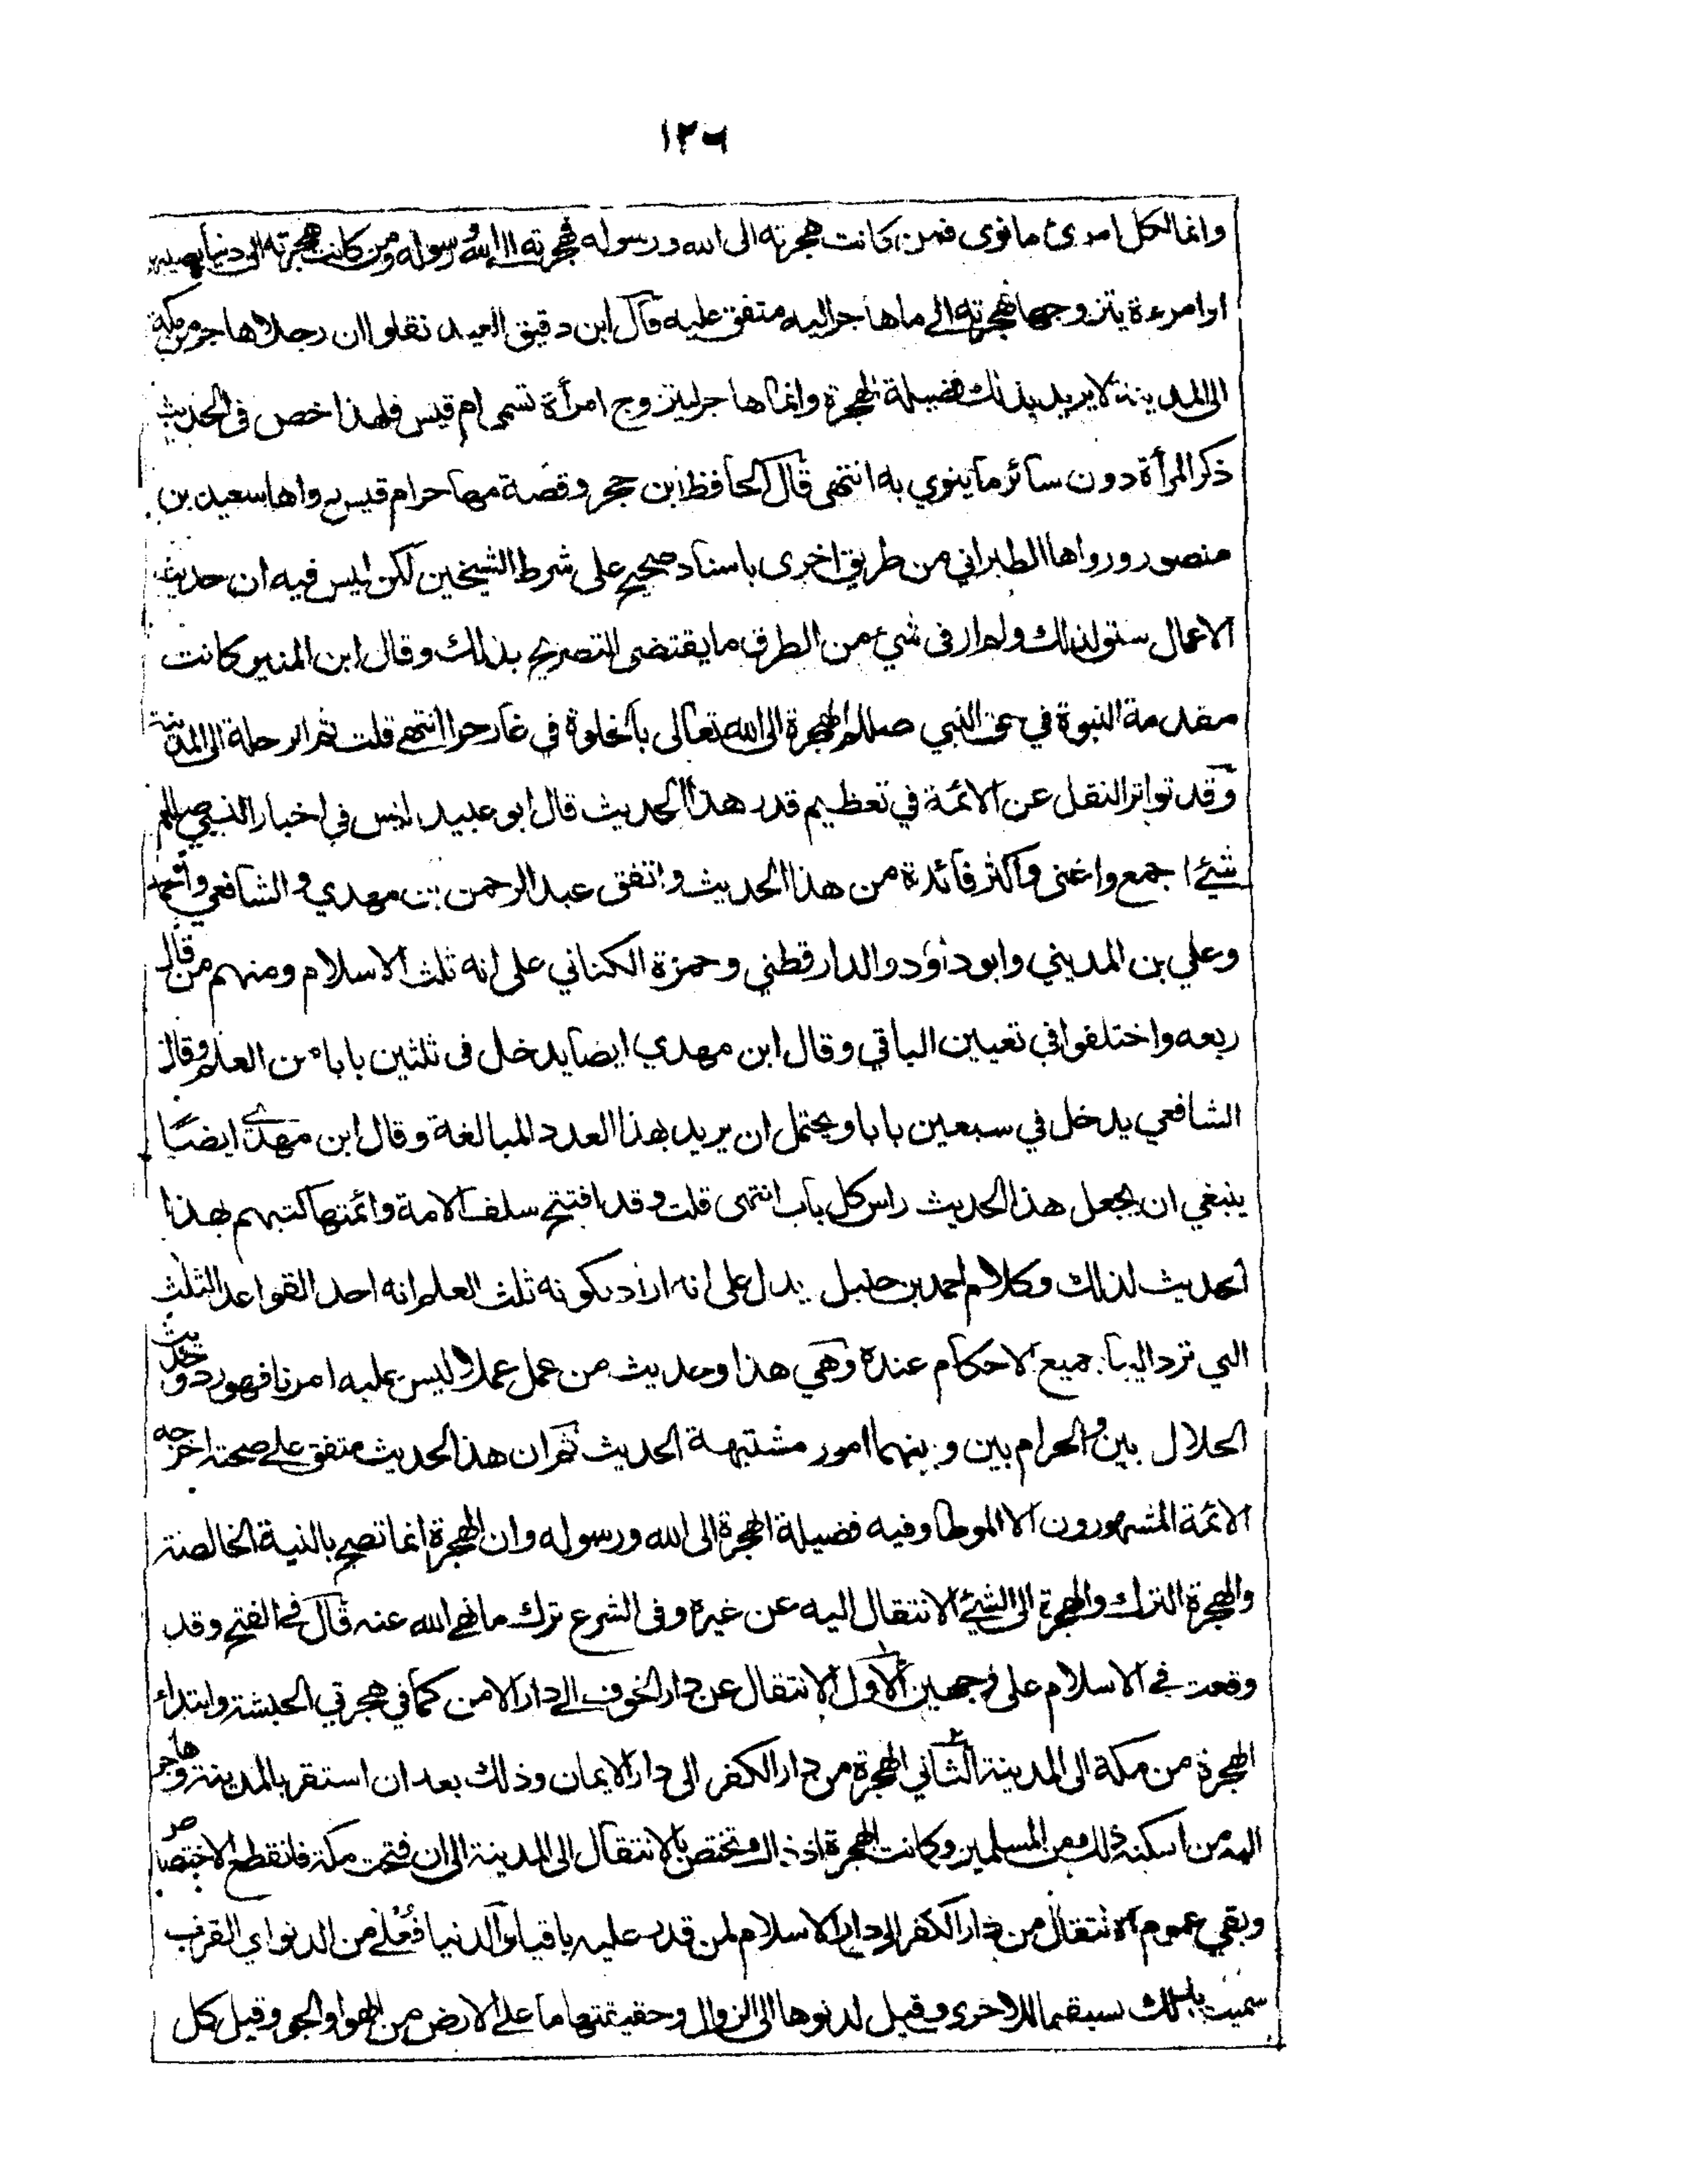 ١٢٦
وانما لكل امرئ ما نوى فمن كانت هجرته الى الله ورسوله فهجرته الى الله ورسوله ومن كانت هجرته الى دنيا يصيبها
او امرءة يتزوجها فهجرته الى ما هاجر اليه متفق عليه قال ابن دقيق العيد نقلوا ان رجلا هاجر من مكة
الى المدينة لا يريد بذلك فضيلة الهجرة وانما هاجر ليتزوج امرأة تسمى ام قيس فلهذا خص في الحديث
ذكر المرأة دون سائر ما ينوي به انتهى قال الحافظ ابن حجر وقصة مهاجر ام قيس رواها سعيد بن
منصور ورواها الطبراني من طريق اخرى باسناد صحيح على شرط الشيخين لكن ليس فيه ان حديث
الاعمال سيق لذلك ولم ار في شيء من الطرق ما يقتضى التصريح بذلك وقال ابن المنير كانت
مقدمة النبوة في حق النبي صللم الهجرة الى الله تعالى بالخلوة في غار حرا انتهى قلت ثم الرحلة الى المدينة
وقد تواتر النقل عن الائمة في تعظيم قدر هذا الحديث قال ابو عبيد ليس في اخبار النبي صللم
شئ اجمع واغنى واكثر فائدة من هذا الحديث واتفق عبد الرحمن بن مهدي والشافعي واحمد
وعلي بن المديني وابو داود والدارقطني وحمزة الكناني على انه ثلث الاسلام ومنهم من قال
ربعه واختلفوا في تعيين الباقي وقال ابن مهدي ايضا يدخل فى ثلثين بابا من العلم وقال
الشافعي يدخل في سبعين بابا ويحتمل ان يريد بهذا العدد المبالغة وقال ابن مهدي ايضًا
ينبغي ان يجعل هذا الحديث راس كل باب انتهى قلت وقد افتتح سلف الامة وائمتها كتبهم بهذا
الحديث لذلك وكلام احمد بن حنبل يدل على انه اراد بكونه ثلث العلم انه احد القواعد الثلث
التي ترد اليها جميع الاحكام عنده وهي هذا وحديث من عمل عملا ليس عليه امرنا فهو رد وحديث
الحلال بين والحرام بين وبينهما امور مشتبهة الحديث ثم ان هذا الحديث متفق على صحته اخرجه
الائمة المشهورون الا الموطا وفيه فضيلة الهجرة الى الله ورسوله وان الهجرة انما تصح بالنية الخالصة
والهجرة الترك والهجرة الى الشئ الانتقال اليه عن غيره وفى الشرع ترك ما نهى الله عنه قال في الفتح وقد
وقعت في الاسلام على وجهين الاول الانتقال عن دار الخوف الى دار الامن كما في هجرتي الحبشة وابتداء
الهجرة من مكة الى المدينة الثاني الهجرة من دار الكفر الى دار الايمان وذلك بعد ان استقر بالمدينة وهاجر
اليه من امكنه ذلك من المسلمين وكانت الهجرة اذ ذاك تختص بالانتقال الى المدينة الى ان فتحت مكة فانقطع الاختصاص
وبقي عموم الانتقال من دار الكفر الى دار الاسلام لمن قدر عليه باقيا والدنيا فُعْلى من الدنو اي القرب
سميت بذلك لسبقها للاخرى وقيل لدنوها الى الزوال وحقيقتها ما على الارض من الهوا والجو وقيل كل